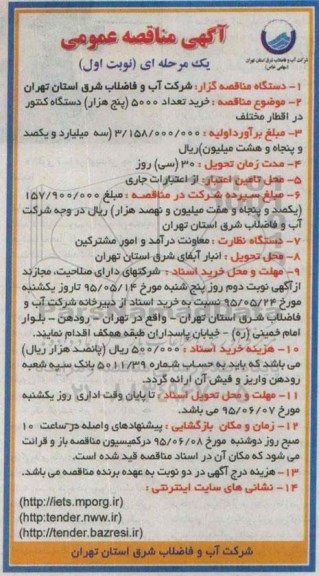 شرکت آب و فاضلاب شرق استان تهران
(سهامی خاص)
آگهی مناقصه عمومی
یک مرحله ای (نوبت اول)
۱- دستگاه مناقصه گزار: شرکت آب و فاضلاب شرق استان تهران
۲- موضوع مناقصه : خرید تعداد ۵۰۰۰ (پنج هزار) دستگاه کنتور
در اقطار مختلف
۳- مبلغ برآورداولیه : ۳/۱۵۸/۰۰۰/۰۰۰ (سه میلیارد و یکصد
و پنجاه و هشت میلیون)ریال
۴- مدت زمان تحویل : ۳۰ (سی) روز
۵- محل تامین اعتبار: از اعتبارات جاری
۶- مبلغ سپرده شرکت در مناقصه : مبلغ ۱۵۷/۹۰۰/۰۰۰
(یکصد و پنجاه و هفت میلیون و نهصد هزار) ریال در وجه شرکت
آب و فاضلاب شرق استان تهران
۷- دستگاه نظارت : معاونت درآمد و امور مشترکین
۸- محل تحویل : انبار آبفای شرق استان تهران
۹- مهلت و محل خرید اسناد : شرکتهای دارای صلاحیت، مجازند
ازآگهی نوبت دوم روز پنج شنبه مورخ ۹۵/۰۵/۱۴ تاروز یکشنبه
مورخ ۹۵/۰۵/۲۴ نسبت به خرید اسناد از دبیرخانه شرکت آب و
فاضلاب شرق استان تهران - واقع در تهران - رودهن - بلوار
امام خمینی (ره) - خیابان پاسداران طبقه همکف اقدام نمایند.
۱۰- هزینه خرید اسناد : ۵۰۰/۰۰۰ ریال (پانصد هزار ریال)
می باشد که باید به حساب شماره ۵۰۱۱/۳۹ بانک سپه شعبه
رودهن واریز و فیش آن ارائه گردد.
۱۱- مهلت و محل تحویل اسناد : تا پایان وقت اداری روز یکشنبه
مورخ ۹۵/۰۶/۰۷ می باشد.
۱۲- زمان و مکان بازگشایی : پیشنهادهای واصله درساعت ۱۰
صبح روز دوشنبه مورخ ۹۵/۰۶/۰۸ درکمیسیون مناقصه باز و قرائت
می شود که مکان آن در اسناد مناقصه قید شده است.
۱۳- هزینه درج آگهی در دو نوبت به عهده برنده مناقصه می باشد.
۱۴- نشانی های سایت اینترنتی :
(http://iets.mporg.ir)
(http:tender.nww.ir)
(http://tender.bazresi.ir)
شرکت آب و فاضلاب شرق استان تهران